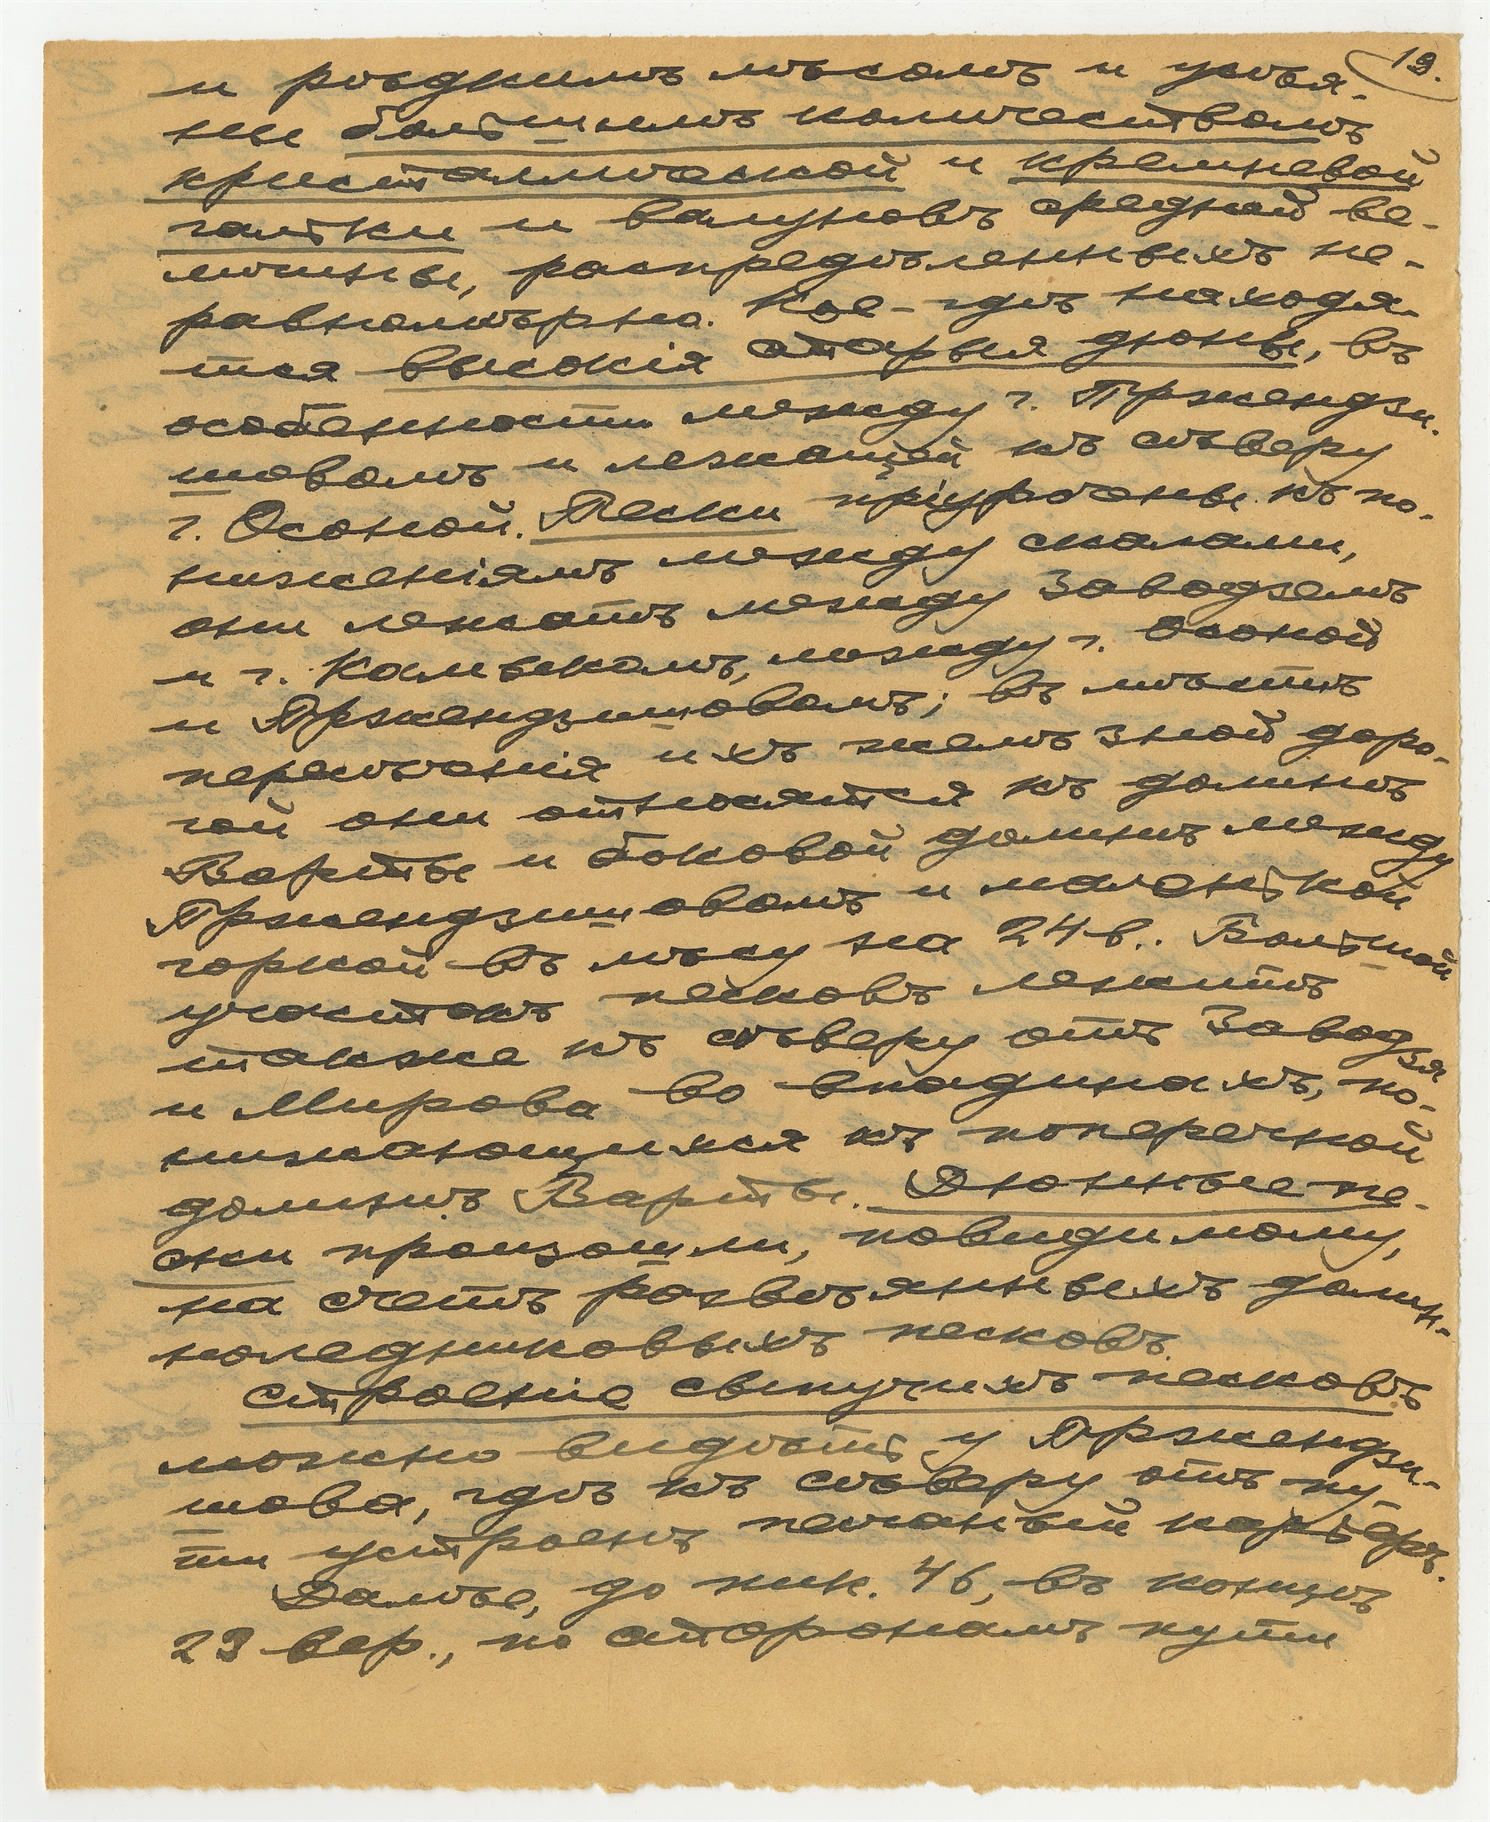 19.
и рѣдкимъ лѣсомъ и усѣя-
ны большимъ количествомъ
кристаллической и кремневой
гальки и валуновъ средней ве-
личины, распредѣленныхъ не-
равномѣрно. Кое-гдѣ находя-
тся высокія старыя дюны, въ
особенности между г. Пржендзи-
шовомъ и лежащей къ сѣверу
г. Осоной. Пески пріурочены къ по-
ниженіямъ между скалами,
они лежатъ между Заводземъ
и г. Камыкомъ, между г. Осоной
и Пржендзишовомъ; въ мѣстѣ
пересѣченія ихъ желѣзной доро-
гой они относятся къ долинѣ
Варты и боковой долинѣ между
Пржендзишовомъ и маленькой
горкой въ лѣсу на 24 в.. Большой
участокъ песковъ лежитъ
также къ сѣверу отъ Заводзя
и Мирова во впадинахъ, по-
нижающихся къ поперечной
долинѣ Варты. Дюнные пе-
ски произошли, повидимому,
на счетъ развѣянныхъ долин-
ноледниковыхъ песковъ.
Строеніе сыпучихъ песковъ
можно видѣть у Пржендзи-
шова, гдѣ къ сѣверу отъ пу-
ти устроенъ песчаный карьеръ.
Далѣе, до пик. 46, въ концѣ
23 вер., по сторонамъ пути